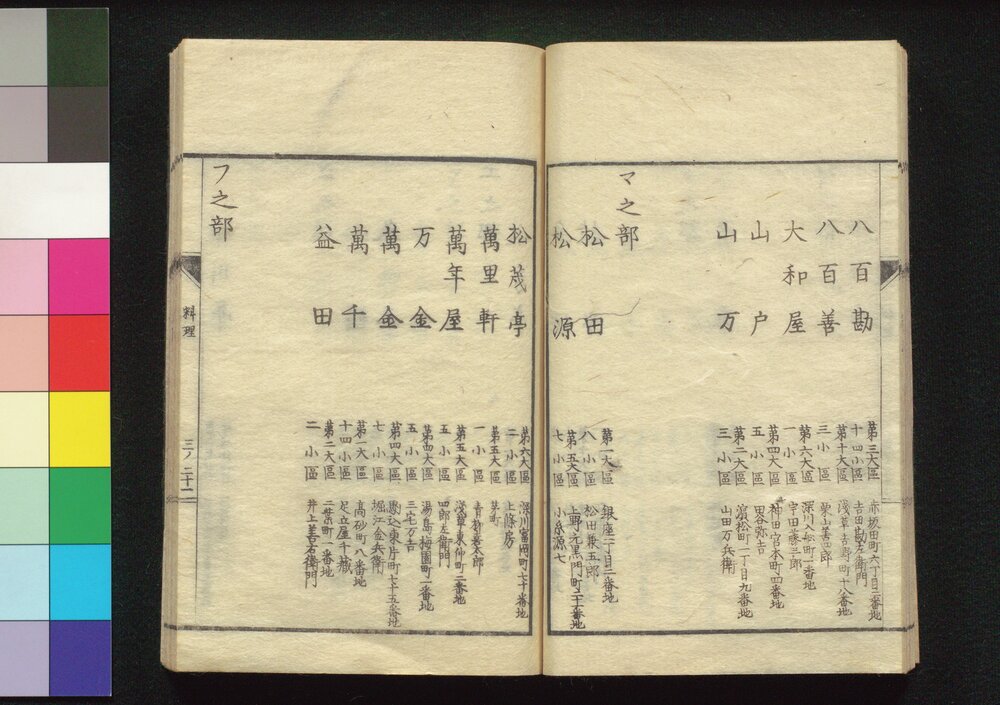 八百勘
第三大區
十四小區
赤坂田町六丁目二番地
吉田勘左衛門
八百善
第十大區
三小區
浅草吉野町十八番地
栗山善四郎
大和屋
第六大區
一小區
深川入船町一番地
山戸
第四大區
五小區
神田宮本町四番地
田谷弥吉
山万
第二大區
三小區
濱松町一丁目九番地
山田万兵衛
マ之部
松田
第一大區
八小區
銀座二丁目二番地
松田兼五郎
松源
第五大區
七小區
上野元黒門町二十番地
小糸源七
松茂亭
第六大區
二小區
深川富岡町七十番地
上條房
萬里軒
第五大區
一小區
茅町
青柳喜太郎
萬年屋
第五大區
五小區
浅草東仲町二番地
四郎左衛門
万金
第四大區
五小區
湯島梅園町一番地
三宅万吉
萬金
第四大區
七小區
駒込東片町七十五番地
堀江金兵衛
萬千
第一大區
十四小區
高砂町八番地
足立屋千蔵
益田
第二大區
二小區
二葉町一番地
井上善右衛門
フ之部
料理
三ノ二十二